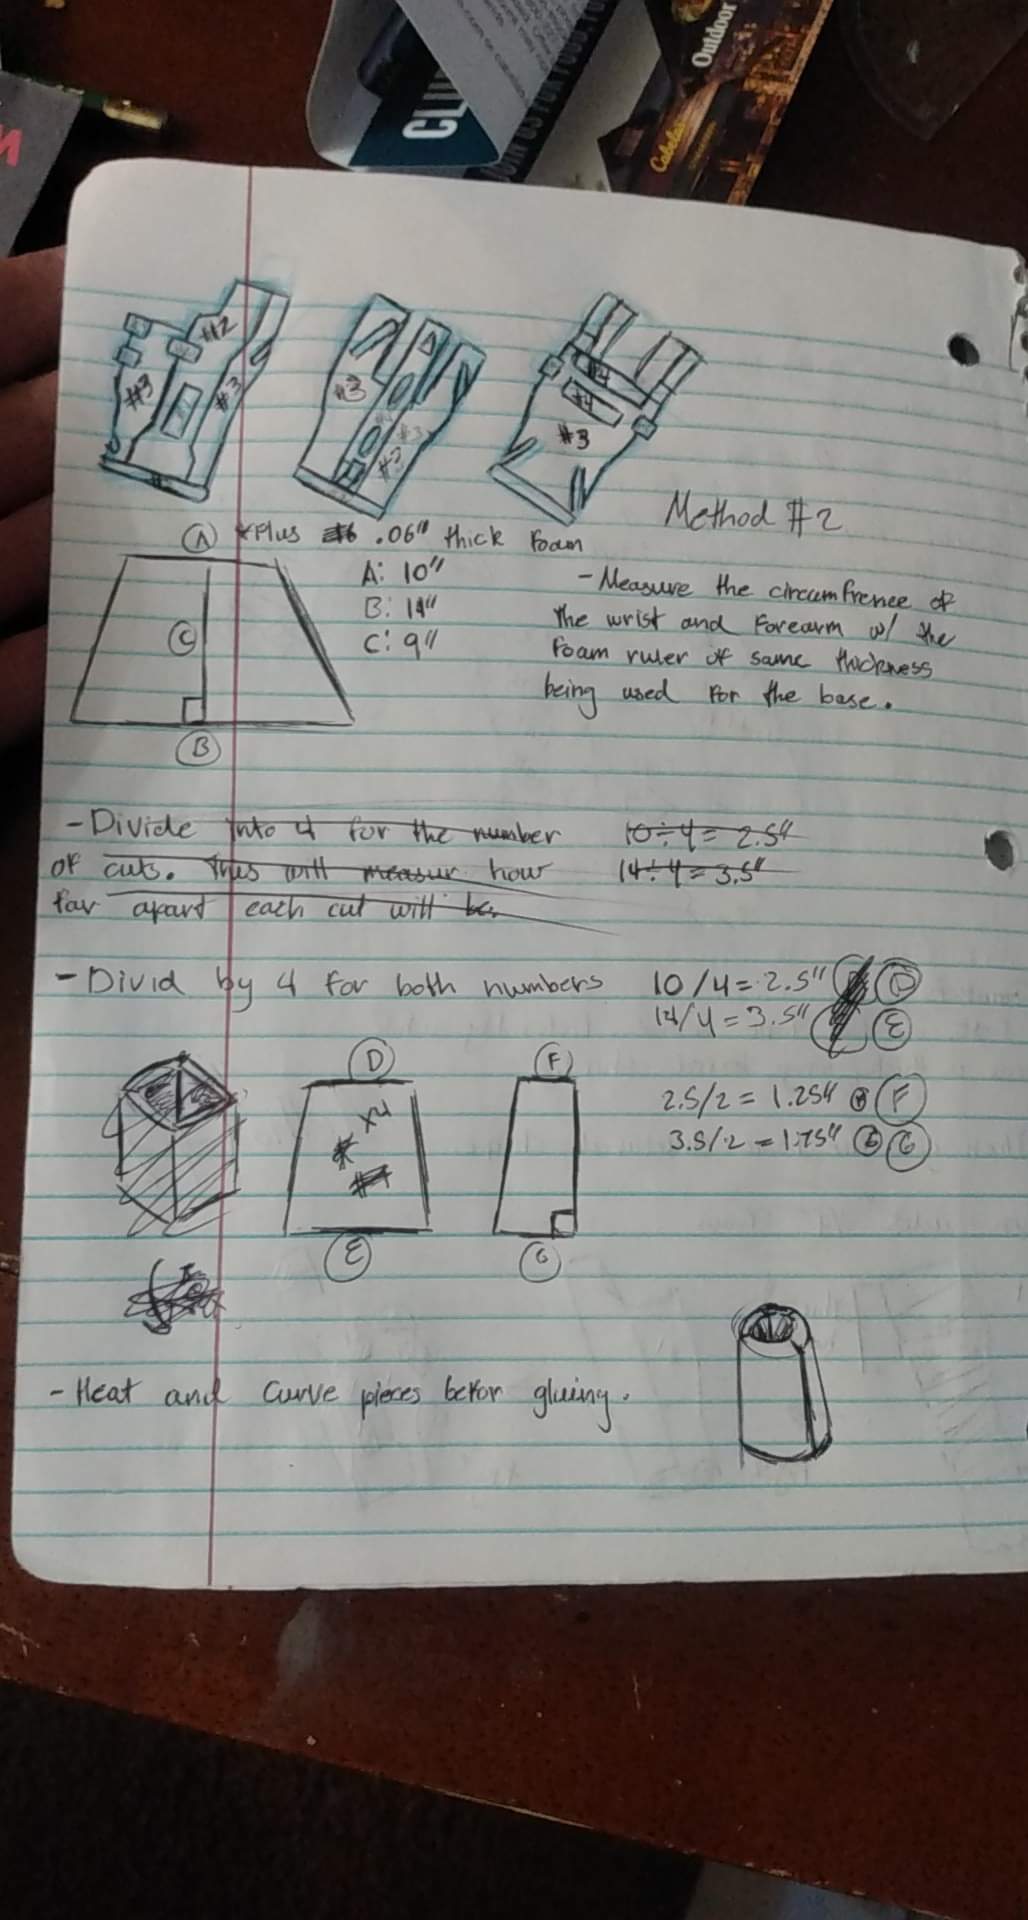 CLU
JOIN US FOR FOOD, FU
Outdoor
Cabela's
#2
#3
#3
#3
#3
#2
#4
#4
#3
Method #2
A *Plus .06" thick foam
A: 10"
B: 14"
C: 9"
C
B
- Measure the circumfrence of
the wrist and forearm w/ the
foam ruler of same thickness
being used for the base.
- Divide into 4 for the number
of cuts. This will measur how
far apart each cut will be.
10÷4= 2.5"
14÷4= 3.5"
- Divid by 4 for both numbers
10/4= 2.5" D
14/4= 3.5" E
2.5/2= 1.25" F
3.5/2= 1.75" G
D
x4
E
F
G
- Heat and curve pieces befor gluing.